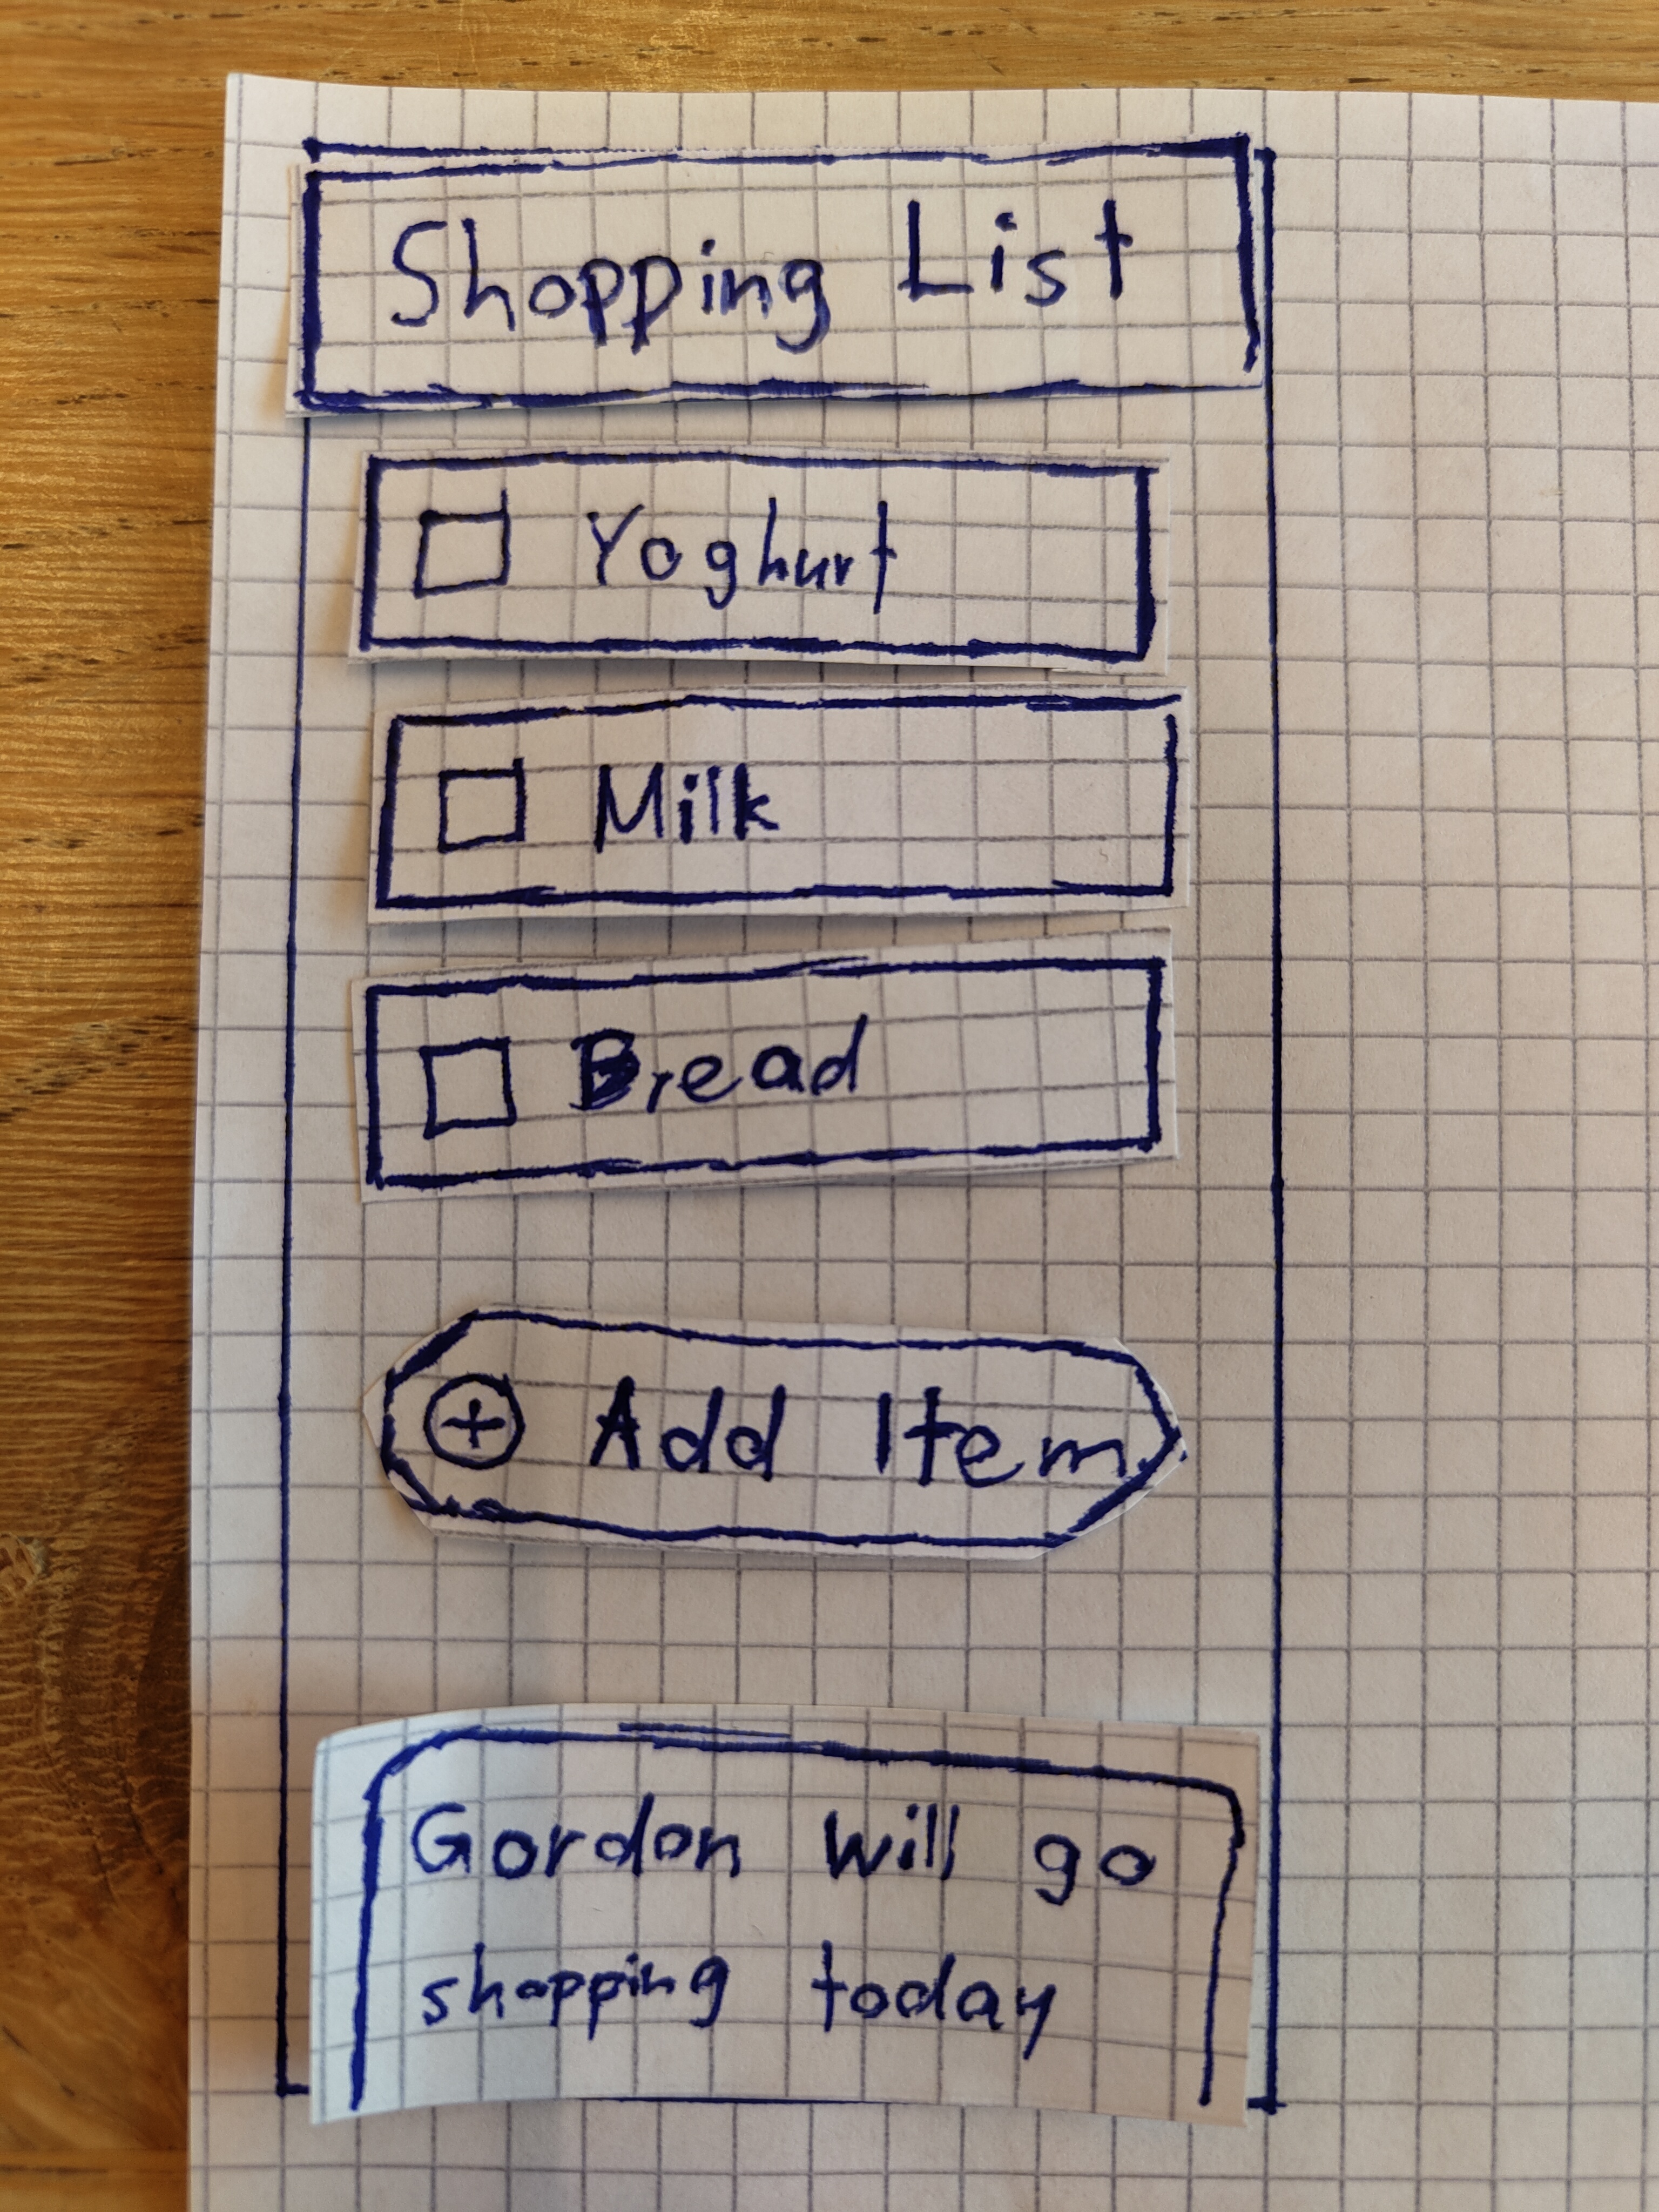 Shopping List
Yoghurt
Milk
Bread
+ Add Item
Gordon will go
shopping today